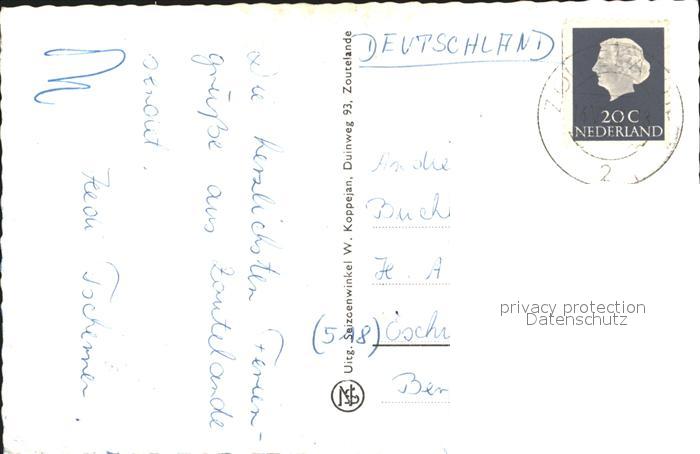 Die herzlichsten Ferien-
grüße aus Zoutelande
sendet
Uitg. Seizoenwinkel W. Koppejan, Duinweg 93, Zoutelande
DEUTSCHLAND
20 C
NEDERLAND
2
Andre
Buch
H. A
Ber
privacy protection
Datenschutz